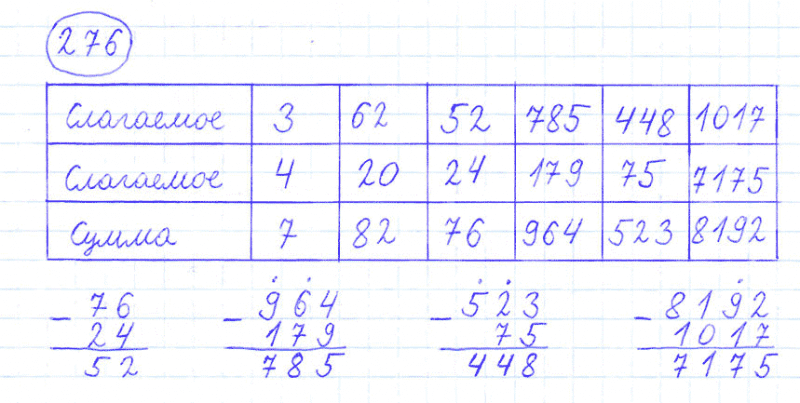 276
Слагаемое 3 62 52 785 448 1017
Слагаемое 4 20 24 179 75 7175
Сумма 7 82 76 964 523 8192
- 76 - 964 - 523 - 8192
24 179 75 1017
52 785 448 7175